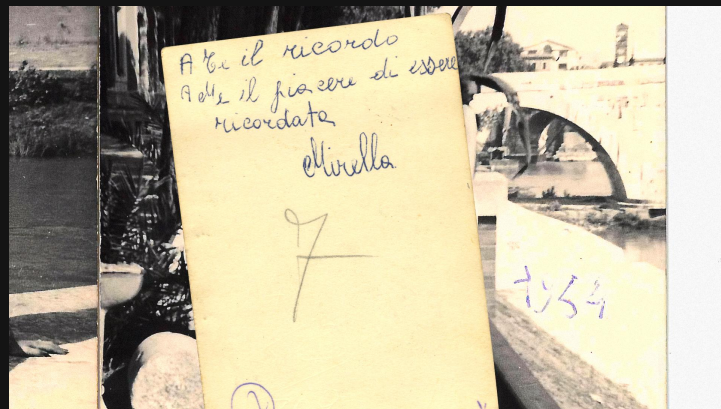 A Te il ricordo
A Me il piacere di essere
ricordata
Mirella
7
1954